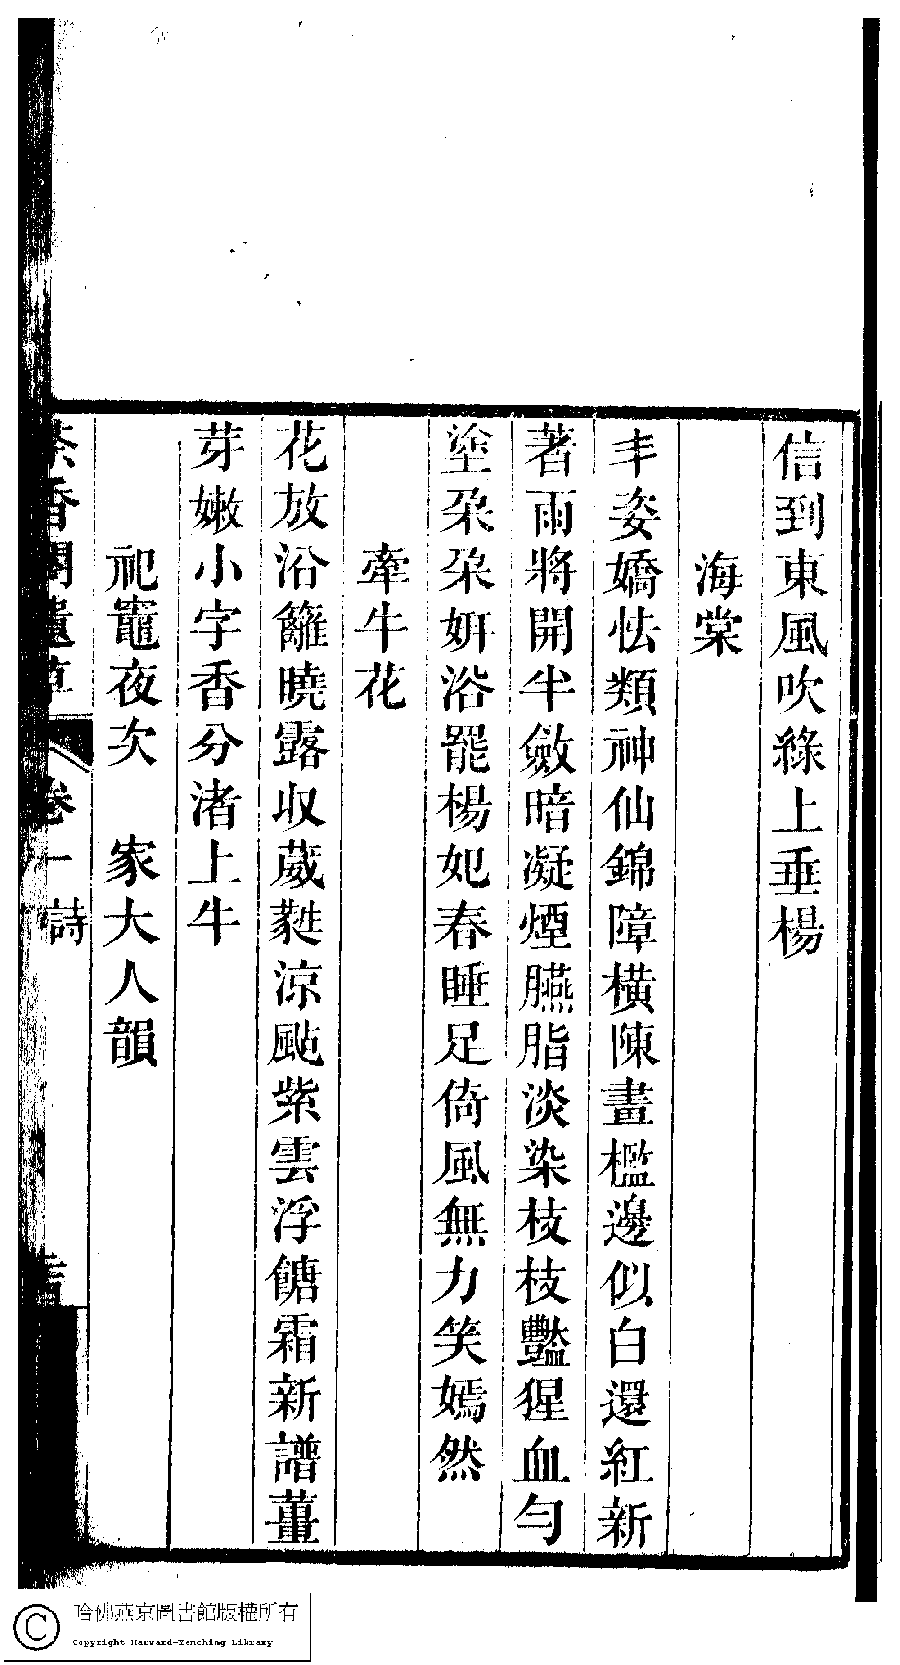 信到東風吹綠上垂楊
海棠
丰姿嬌怯類神仙錦障橫陳畫檻邊似白還紅新
著雨將開半斂暗凝煙臙脂淡染枝枝豔猩血勻
塗朶朶妍浴罷楊妃春睡足倚風無力笑嫣然
牽牛花
花放沿籬曉露収葳蕤涼颭紫雲浮餹霜新譜薑
芽嫩小字香分渚上牛
祀竈夜次 家大人韻
茶香閣遺草 卷一 詩
哈佛燕京圖書館版權所有
Copyright Harvard-Yenching Library